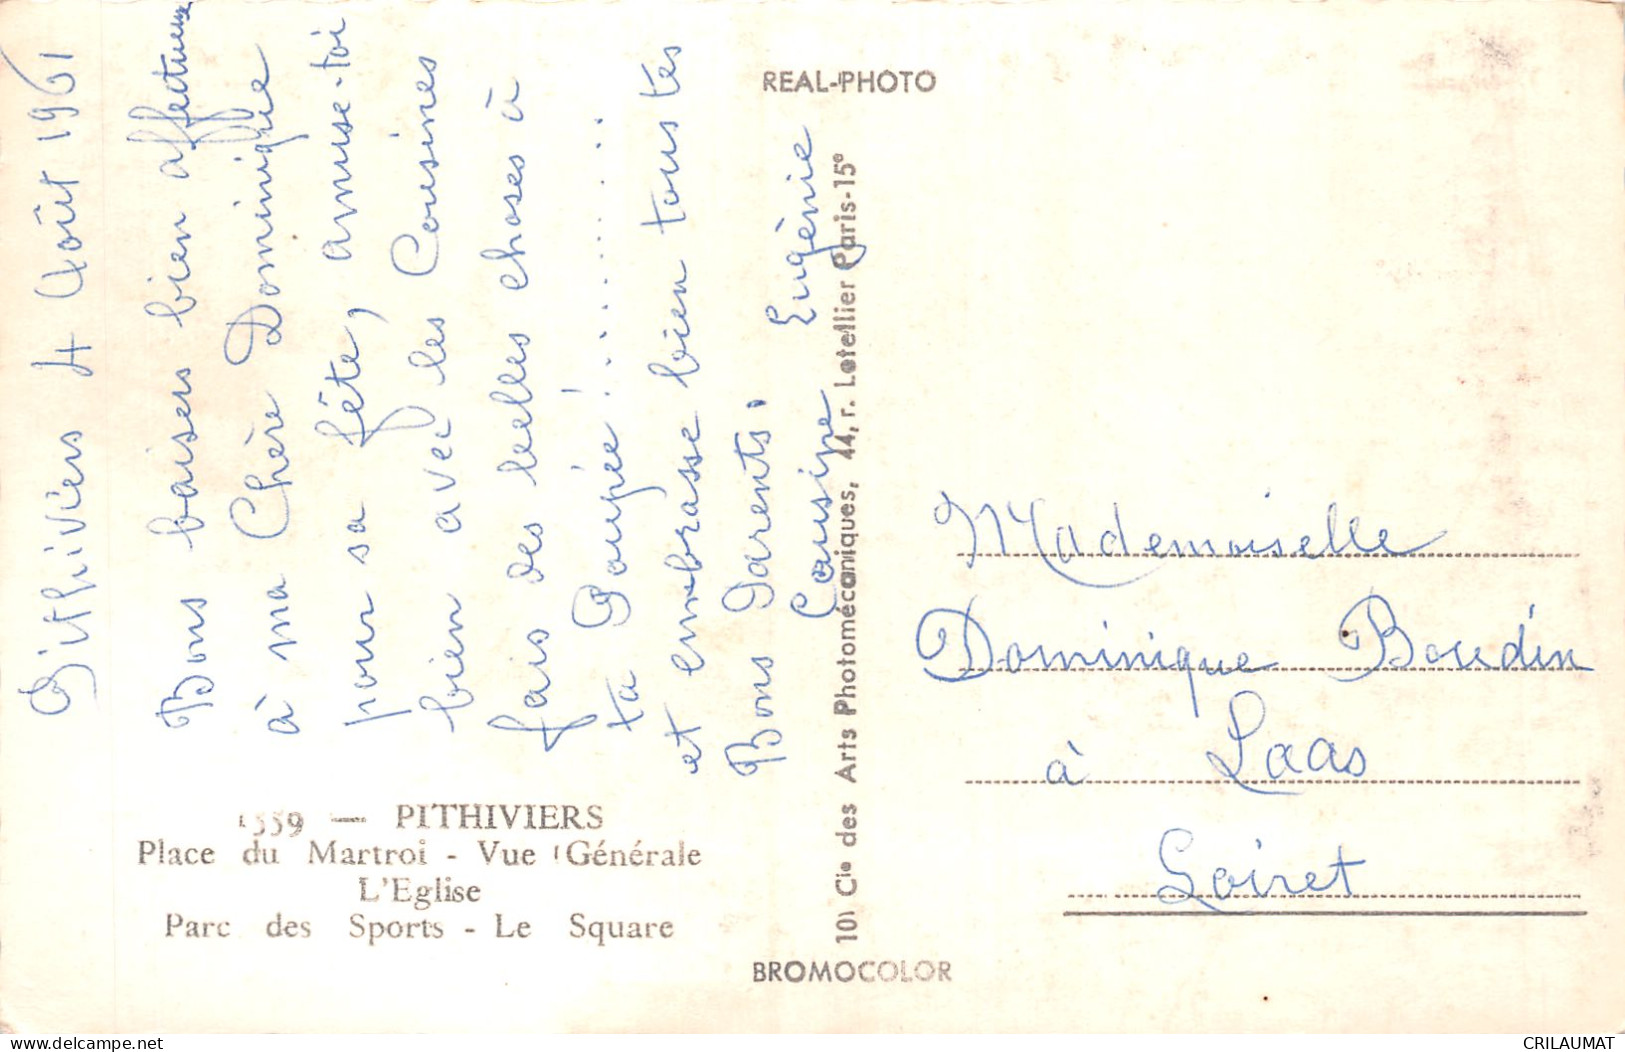 Pithiviers 4 Août 1961
Bons baisers bien affectueux
à ma Chère Dominique
pour sa fête, amuse-toi
bien avec les Cousines
fais des belles choses à
ta Poupée !.........
et embrasse bien tous tes
Bons Parents.
Cousine Eugènie
1559 — PITHIVIERS
Place du Martroi - Vue Générale
L'Eglise
Parc des Sports - Le Square
REAL-PHOTO
101 Cie des Arts Photomécaniques, 44, r. Letellier Paris-15e
BROMOCOLOR
Mademoiselle
Dominique Boudin
à Laas
Loiret
delcampe.net
CRILAUMAT